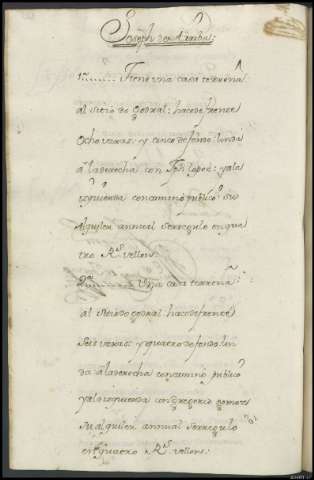 Joseph
1ª Tiene una casa terrena
al sitio do Codral: hace de frente
ocho varas: y cinco de fondo linda
a la derecha con Jph Lopez: y a la
izquierda con camino publico su
Alquiler annual se reguló en qua
tro Rs vellon:
Una casa terrena:
al sitio do codral hace de frente
seis varas: y quatro de fondo lin
da a la derecha con camino publico
y a la izquierda con Gregorio gomez
su alquiler annual se reguló
en quatro Rs vellon: